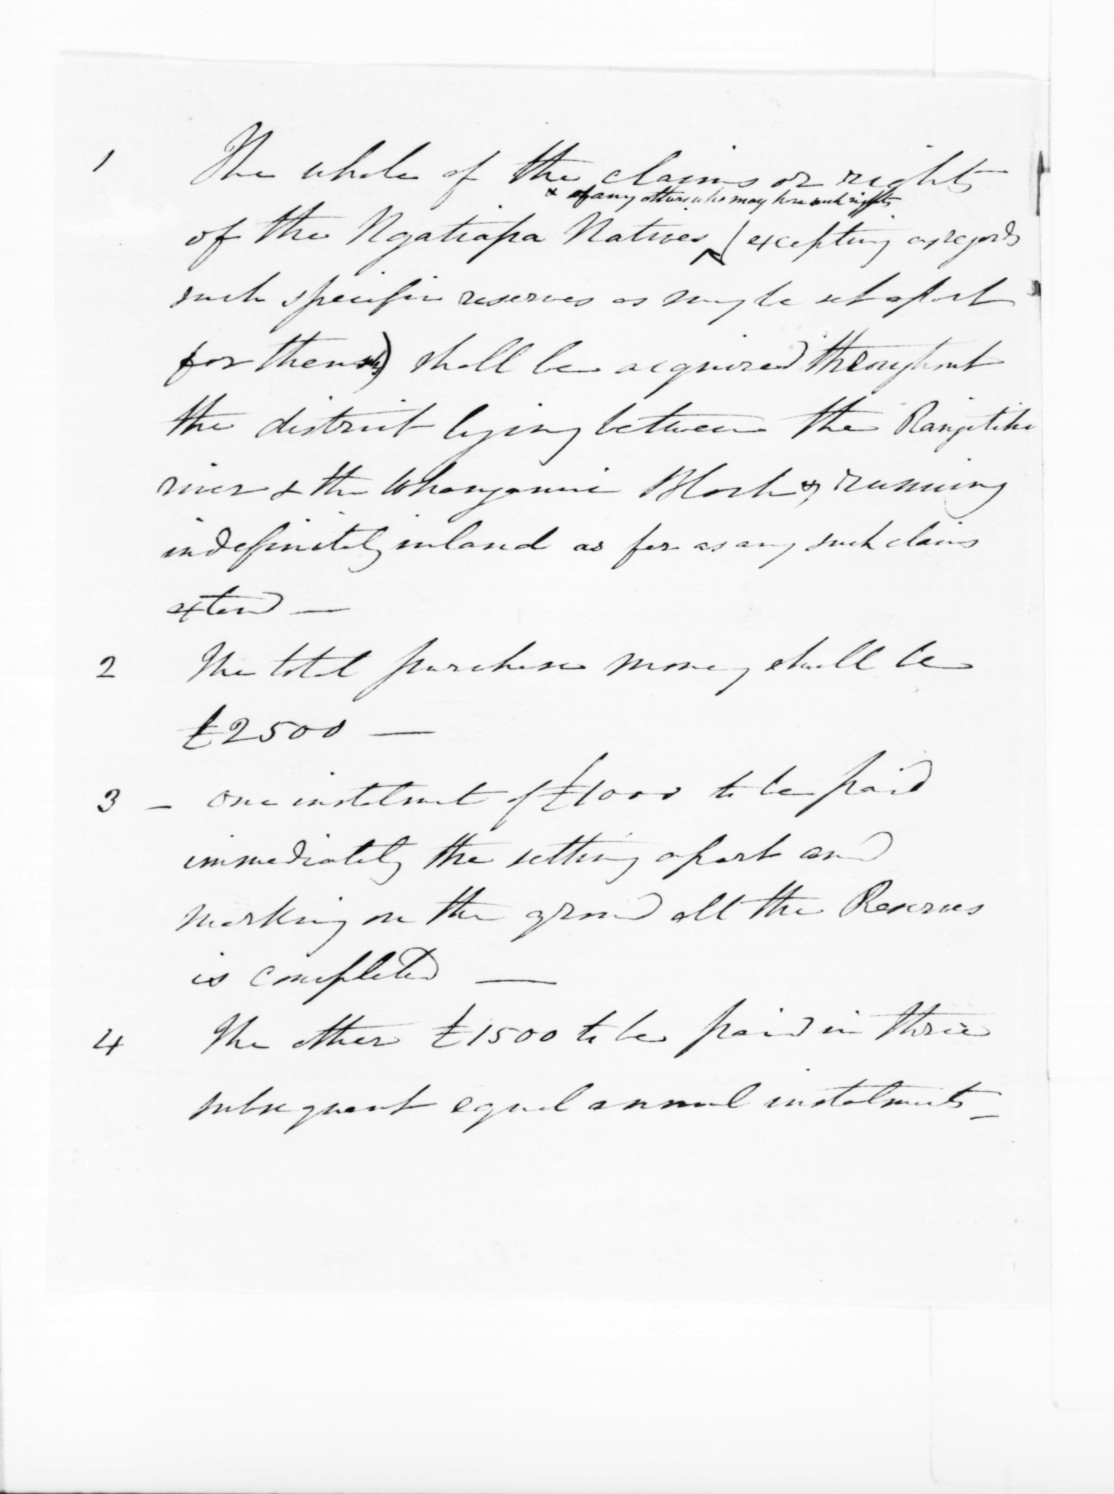 1 The whole of the claims or rights
& of any others who may have such rights
of the Ngatiapa Natives (excepting as regards
such specific reserves as may be set apart
for them) shall be acquired throughout
the district lying between the Rangitiki
river & the Whanganui Block & running
indefinitely inland as far as any such claims
extend —
2 The total purchase money shall be
£2500 —
3 — One instalment of £1000 to be paid
immediately the setting apart and
marking on the ground all the Reserves
is completed —
4 The other £1500 to be paid in three
subsequent equal annual instalments —